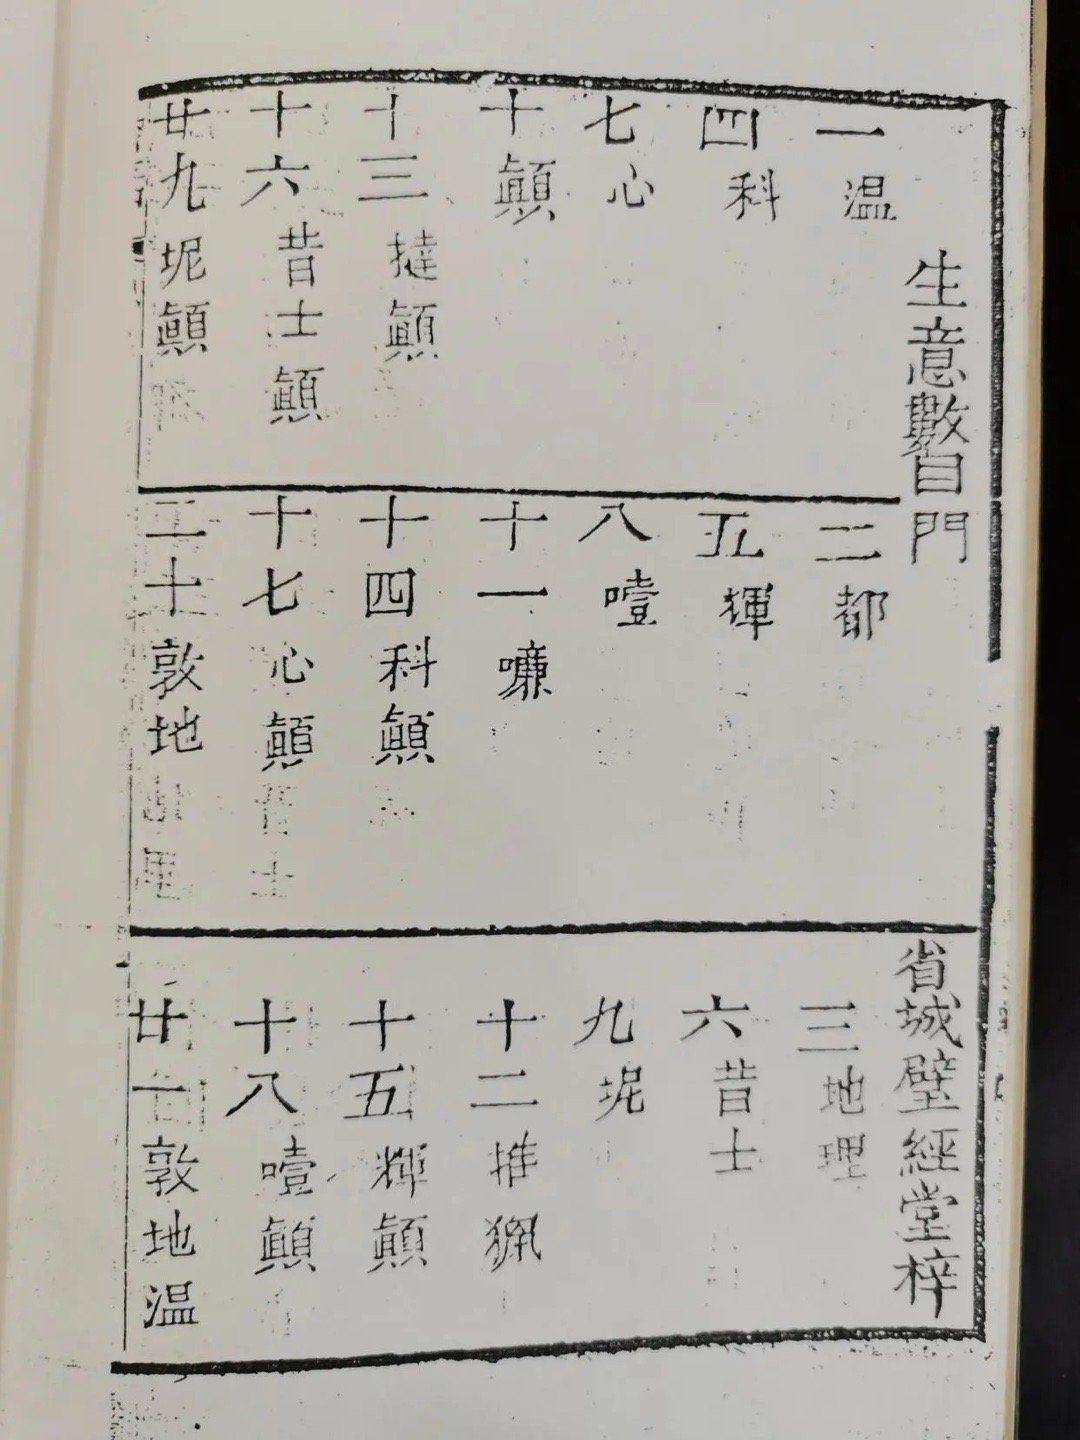 生意數目門
省城璧經堂梓
一温
二都
三地理
四科
五𤟤
六昔士
七心
八噎
九坭
十顛
十一
十二推
十三撻顛
十四科顛
十五輝顛
十六昔士顛
十七心顛
十八噎顛
廿九坭顛
二十敦地
廿一敦地温